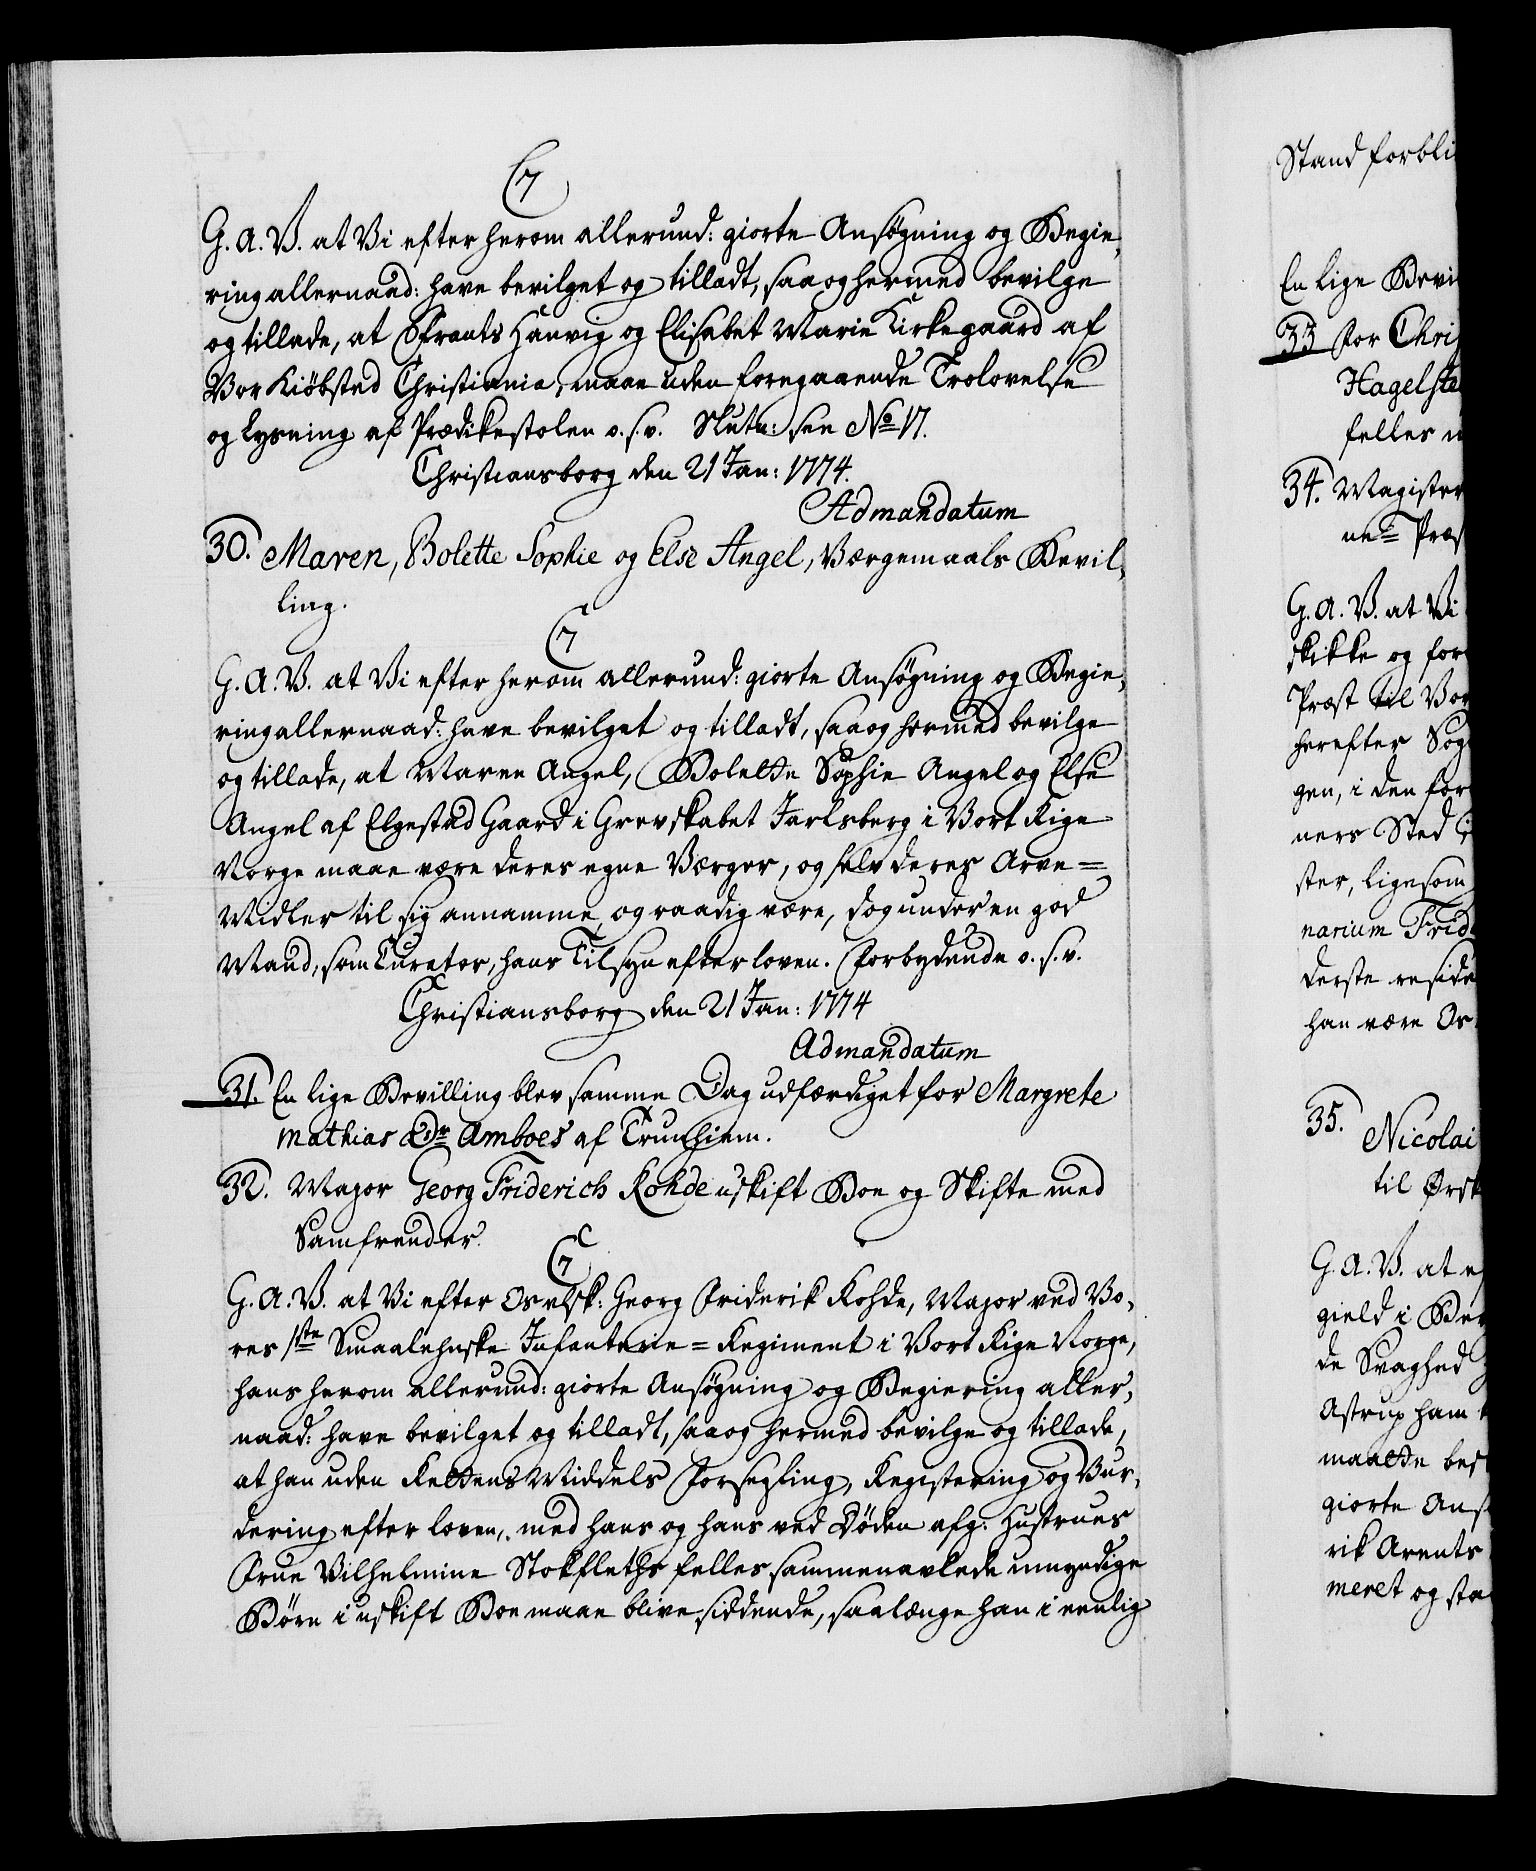 C7
G. A. V. at Vi efter herom allerund: giorte Ansøgning og Begie,
ring allernaad: have bevilget og tilladt, saa og hermed bevilge
og tillade, at Frants Hanvig og Elisabet Marie Kirkegaard af
Vor Kiöbsted Christiania, maae uden foregaaende Trolovelse
og Lysning af Prædikestolen o. s. v. Slutn: see No 17.
Christiansborg den 21 Jan: 1774.
Admandatum
30. Maren, Bolette Sophie og Else Angel, Værgemaals Bevil,
ling.
C7
G. A. V. at Vi efter herom allerund: giorte Ansøgning og Begie,
ring allernaad: have bevilget og tilladt, saa og hermed bevilge
og tillade, at Maren Angel, Bolette Sophie Angel og Else
Angel af Elgestad Gaard i Grevskabet Jarlsberg i Vort Rige
Norge maae være deres egne Værger, og selv deres Arve=
Midler til sig annamme, og raadig være, dog under en god
Mand, som Curator, hans Tilsyn efter loven. Forbydende o. s. v.
Christiansborg den 21 Jan: 1774
Admandatum
31. En lige Bevilling blev samme Dag udfærdiget for Margrete
Mathias Dr Amboes af Trunhiem.
32. Major Georg Friderich Rohde uskift Boe og Skifte med
Samfrender.
C7
G. A. V. at Vi efter Os elsk: Georg Friderik Rohde, Major ved Vo,
res 1ste Smaalehnske Infanterie= Regiment i Vort Rige Norge,
hans herom allerund: giorte Ansøgning og Begiering aller,
naad: have bevilget og tilladt, saa og hermed bevilge og tillade,
at han uden Rettens Middels Forsegling, Registering og Vur,
dering efter loven, med hans og hans ved Døden afg: Hustrues
Frue Vilhelmine Stokfleths felles sammenavlede umyndige
Børn i uskift Boe maae blive siddende, saalænge han i eenlig
Stand forbli
En lige Bevi
33 for Chri
Hagelste
felles
34. Magister
Præs
G. A. V. at Vi
skikke og for
Præst til Vor
herefter Sog
gen, i den for
ners Sted
ster, ligesom
narium Frid
derste reside
han være Os
35. Nicolai
til Ørsk
G. A. V. at
gield i Ber
de Svaghed
Astrup ham
maatte bes
giorte Ans
rik Arents
meret og sta